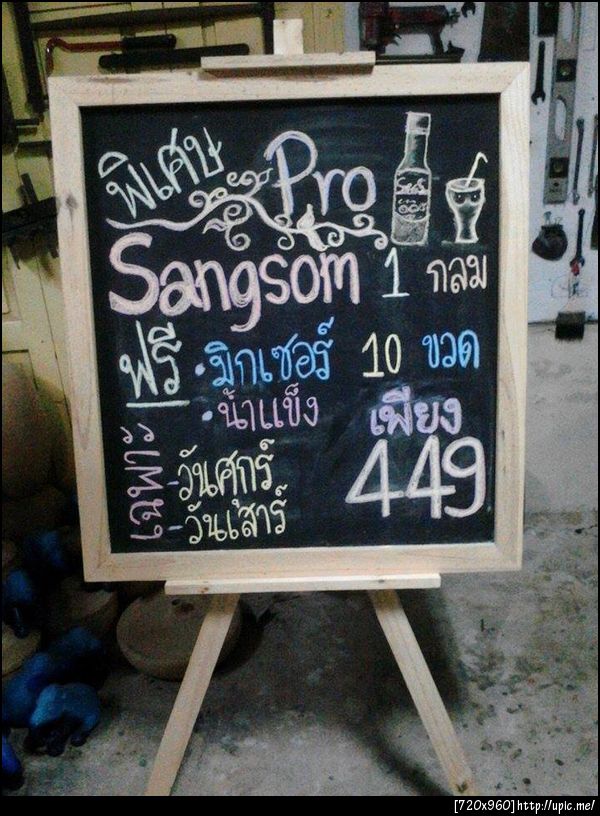 พิเศษ Pro
Sangsom 1 กลม
ฟรี • มิกเซอร์ 10 ขวด
• น้ำแข็ง
เพียง
449
เฉพาะ
- วันศุกร์
- วันเสาร์
[720x960]http://upic.me/